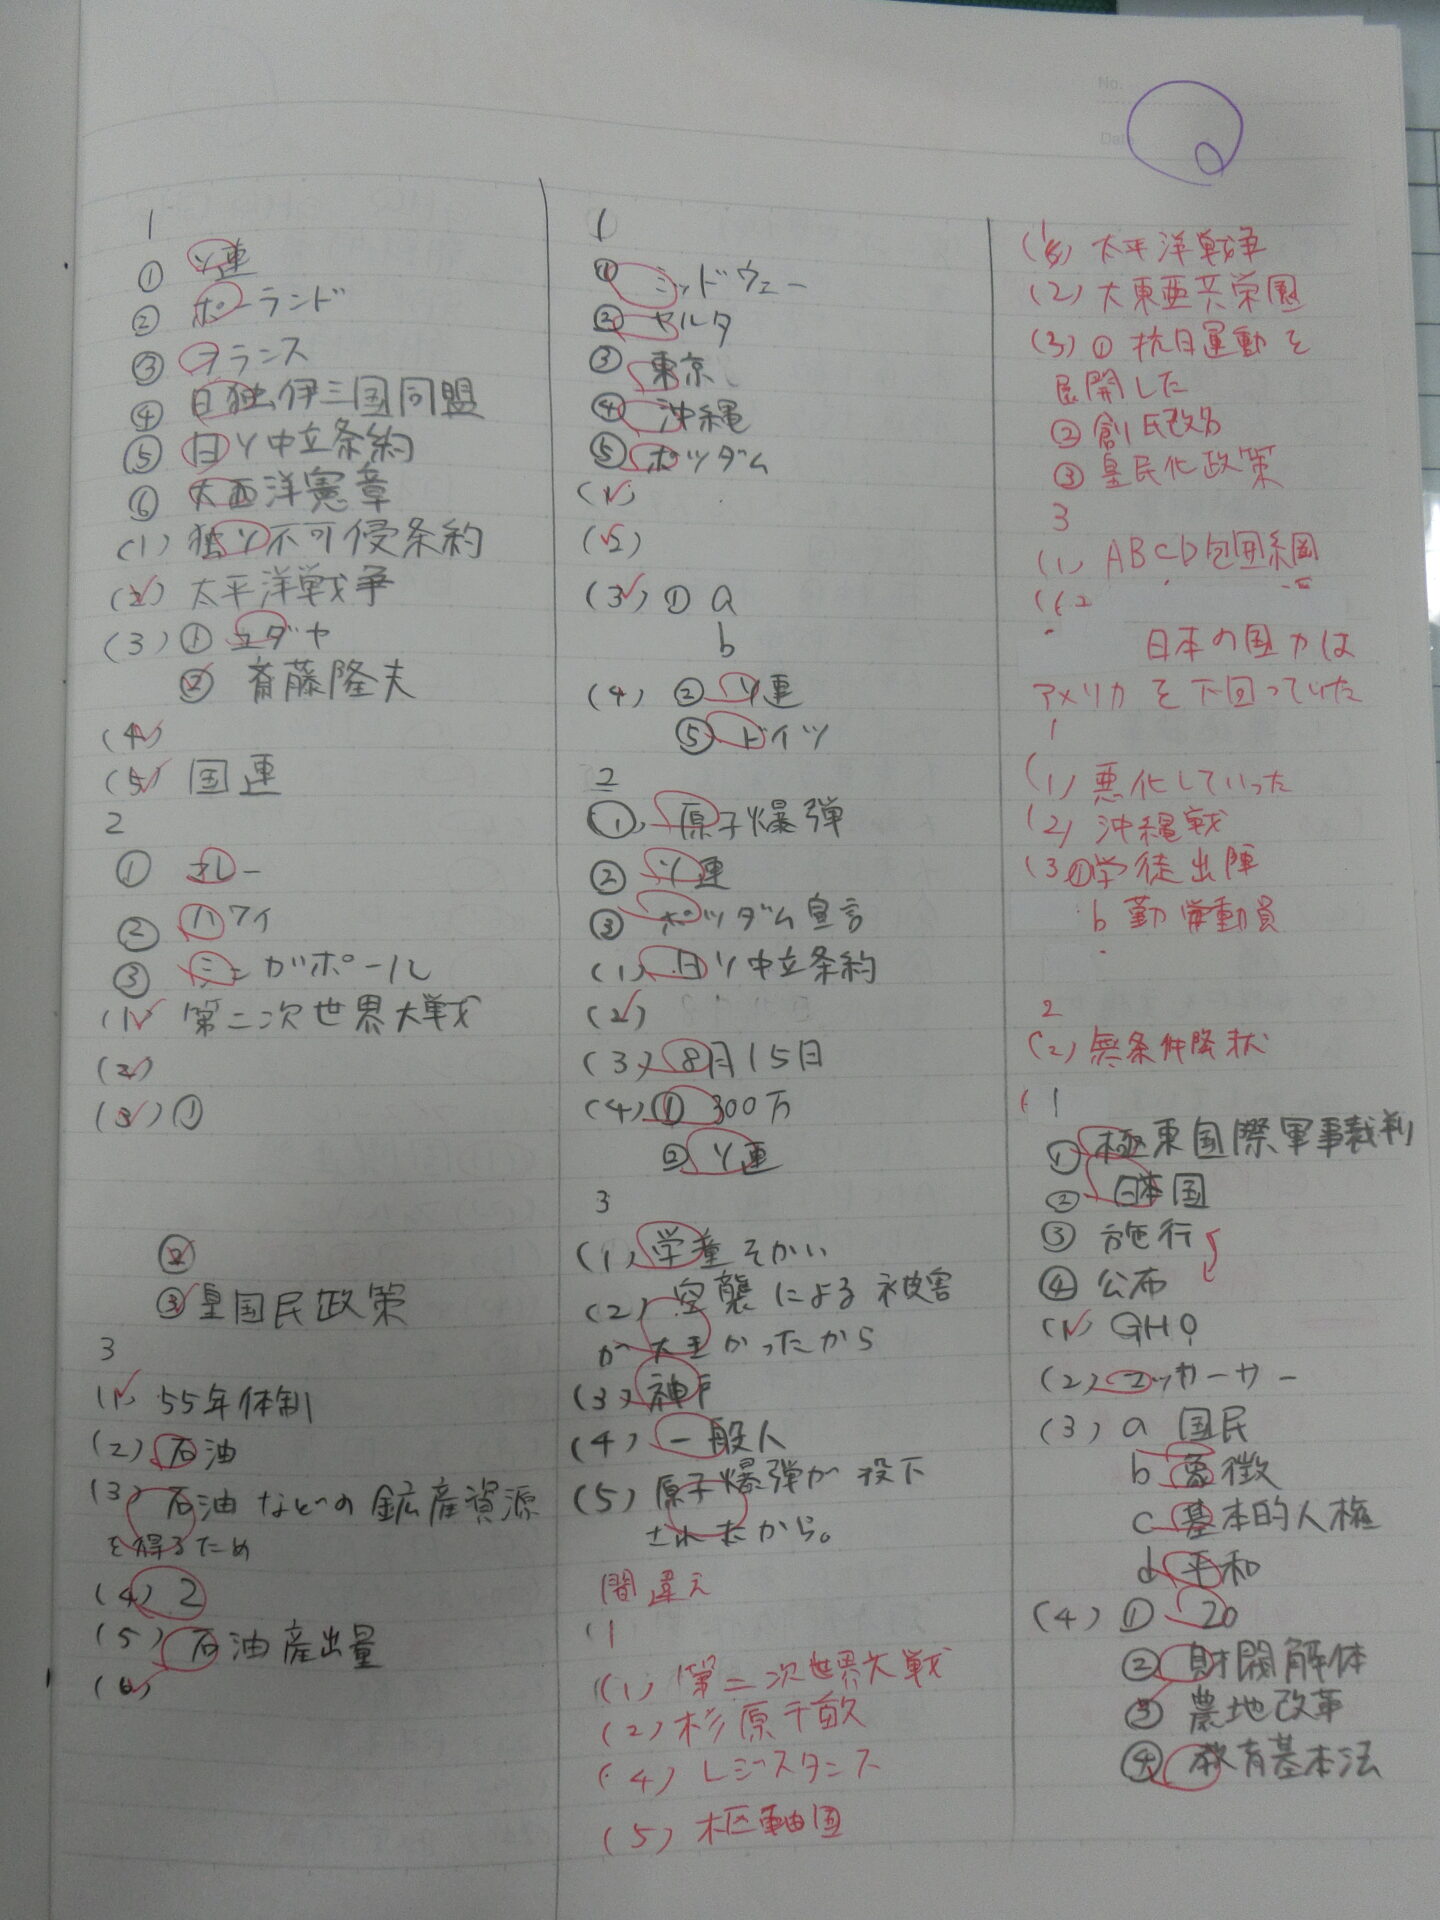 No.
Date
1
① ソ連
② ポーランド
③ フランス
④ 日独伊三国同盟
⑤ 日ソ中立条約
⑥ 大西洋憲章
(1) 独ソ不可侵条約
(2) 太平洋戦争
(3) ① ユダヤ
② 斎藤隆夫
(4)
(5) 国連
2
①
② ハワイ
③ シンガポール
(1) 第二次世界大戦
(2)
(3) ①
②
③ 皇国民政策
3
(1) 55年体制
(2) 石油
(3) 石油などの鉱産資源
を得るため
(4) 2
(5) 石油産出量
(6)
1
① ミッドウェー
② ヤルタ
③ 東京
④ 沖縄
⑤ ポツダム
(1)
(2)
(3) ① a
b
(4) ② ソ連
⑤ ドイツ
2
① 原子爆弾
② ソ連
③ ポツダム宣言
(1) 日ソ中立条約
(2)
(3) 8月15日
(4) ① 300万
② ソ連
3
(1) 学童そかい
(2) 空襲による被害
が大きかったから
(3) 神戸
(4) 一般人
(5) 原子爆弾が投下
されたから。
間違え
1
(1) 第二次世界大戦
(2) 杉原千畝
(4) レジスタンス
(5) 枢軸国
(1) 太平洋戦争
(2) 大東亜共栄圏
(3) ① 抗日運動を
展開した
② 創氏改名
③ 皇民化政策
3
(1) ABCD包囲網
(2
日本の国力は
アメリカを下回っていた
1
(1) 悪化していった
(2) 沖縄戦
(3) ① 学徒出陣
b 勤労動員
2
(2) 無条件降伏
1
① 極東国際軍事裁判
② 日本国
③ 施行
④ 公布
(1) GHQ
(2) マッカーサー
(3) a 国民
b 象徴
c 基本的人権
d 平和
(4) ① 20
② 財閥解体
③ 農地改革
④ 教育基本法